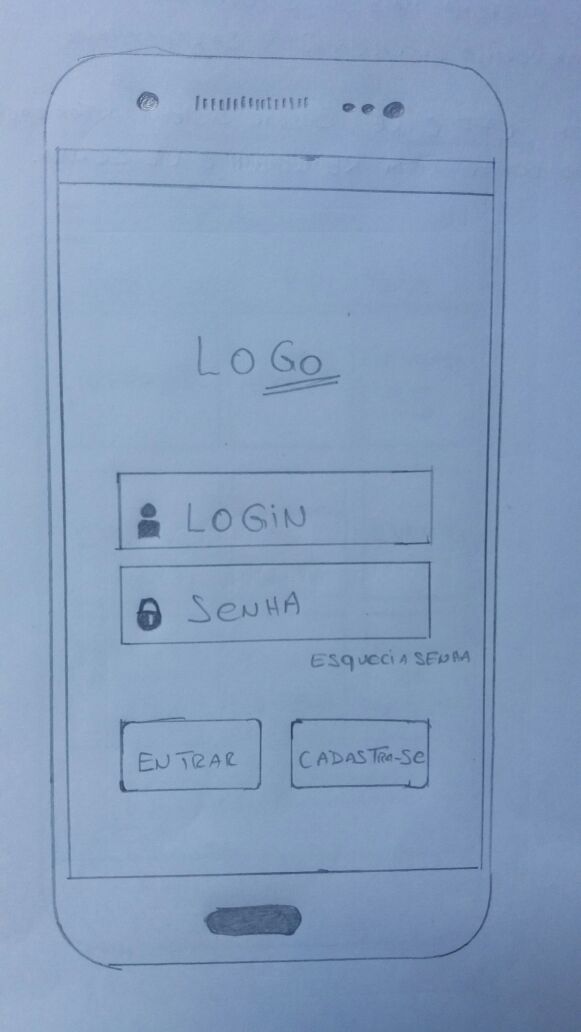 LOGO
LOGiN
SENHA
ESQUECI A SENHA
ENTRAR
CADASTRA-SE